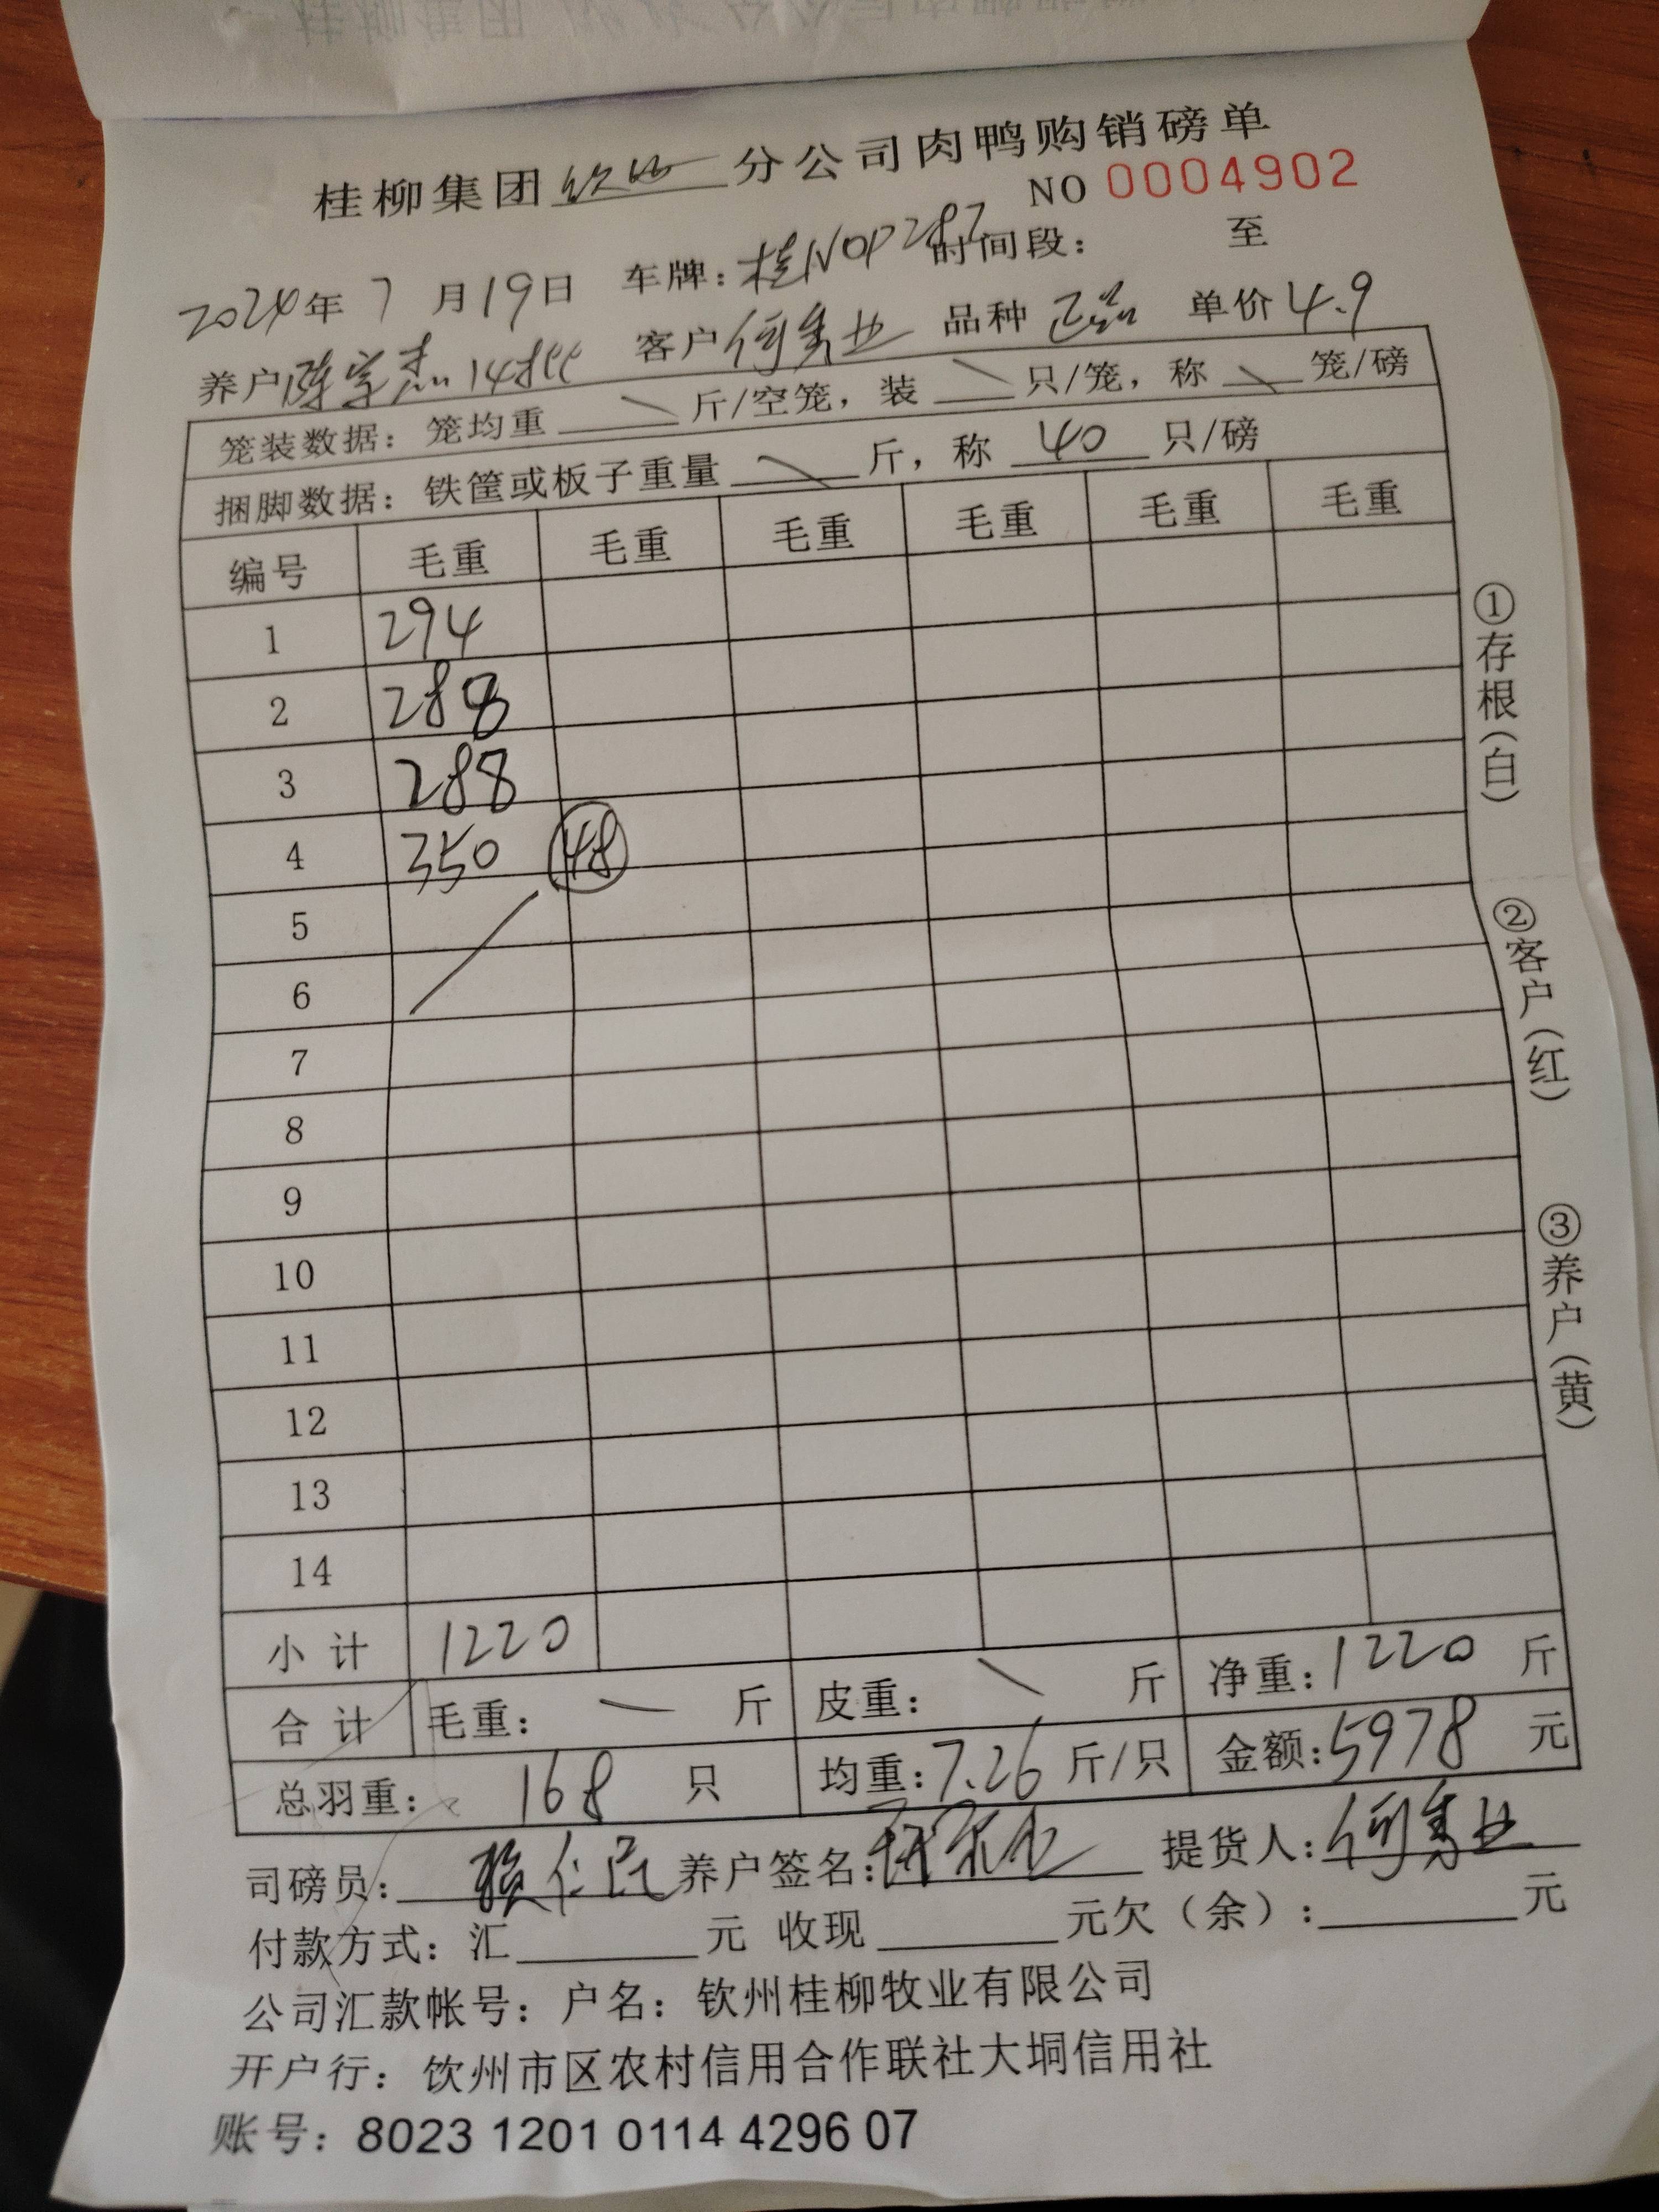 桂柳集团 钦州 分公司肉鸭购销磅单
NO 0004902
2024年 7 月19日 车牌：桂N0P287 时间段： 至
养户 陈宗杰 14批 客户 何秀业 品种 正品 单价 4.9
笼装数据：笼均重 \ 斤/空笼，装 \ 只/笼，称 \ 笼/磅
捆脚数据：铁筐或板子重量 \ 斤，称 40 只/磅
编号 毛重 毛重 毛重 毛重 毛重 毛重
1 294
2 288
3 288
4 350 48
5
6
7
8
9
10
11
12
13
14
小 计 1220
合 计 毛重： — 斤 皮重： \ 斤 净重：1220 斤
总羽重： 168 只 均重：7.26 斤/只 金额：5978 元
司磅员： 养户签名： 提货人：何秀业
付款方式：汇 元 收现 元欠（余）： 元
公司汇款帐号：户名：钦州桂柳牧业有限公司
开户行：钦州市区农村信用合作联社大垌信用社
账号：8023 1201 0114 4296 07
①存根（白）
②客户（红）
③养户（黄）